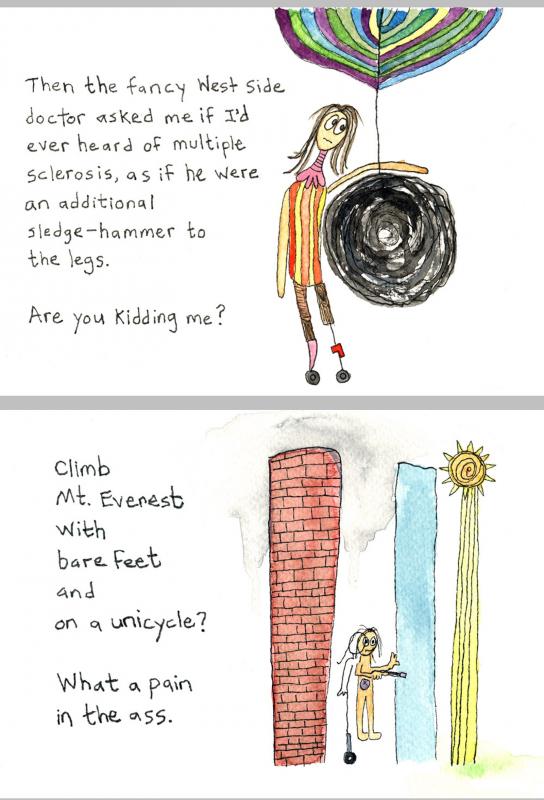 Then the fancy West Side
doctor asked me if I'd
ever heard of multiple
sclerosis, as if he were
an additional
sledge-hammer to
the legs.
Are you kidding me?
Climb
Mt. Everest
with
bare feet
and
on a unicycle?
What a pain
in the ass.